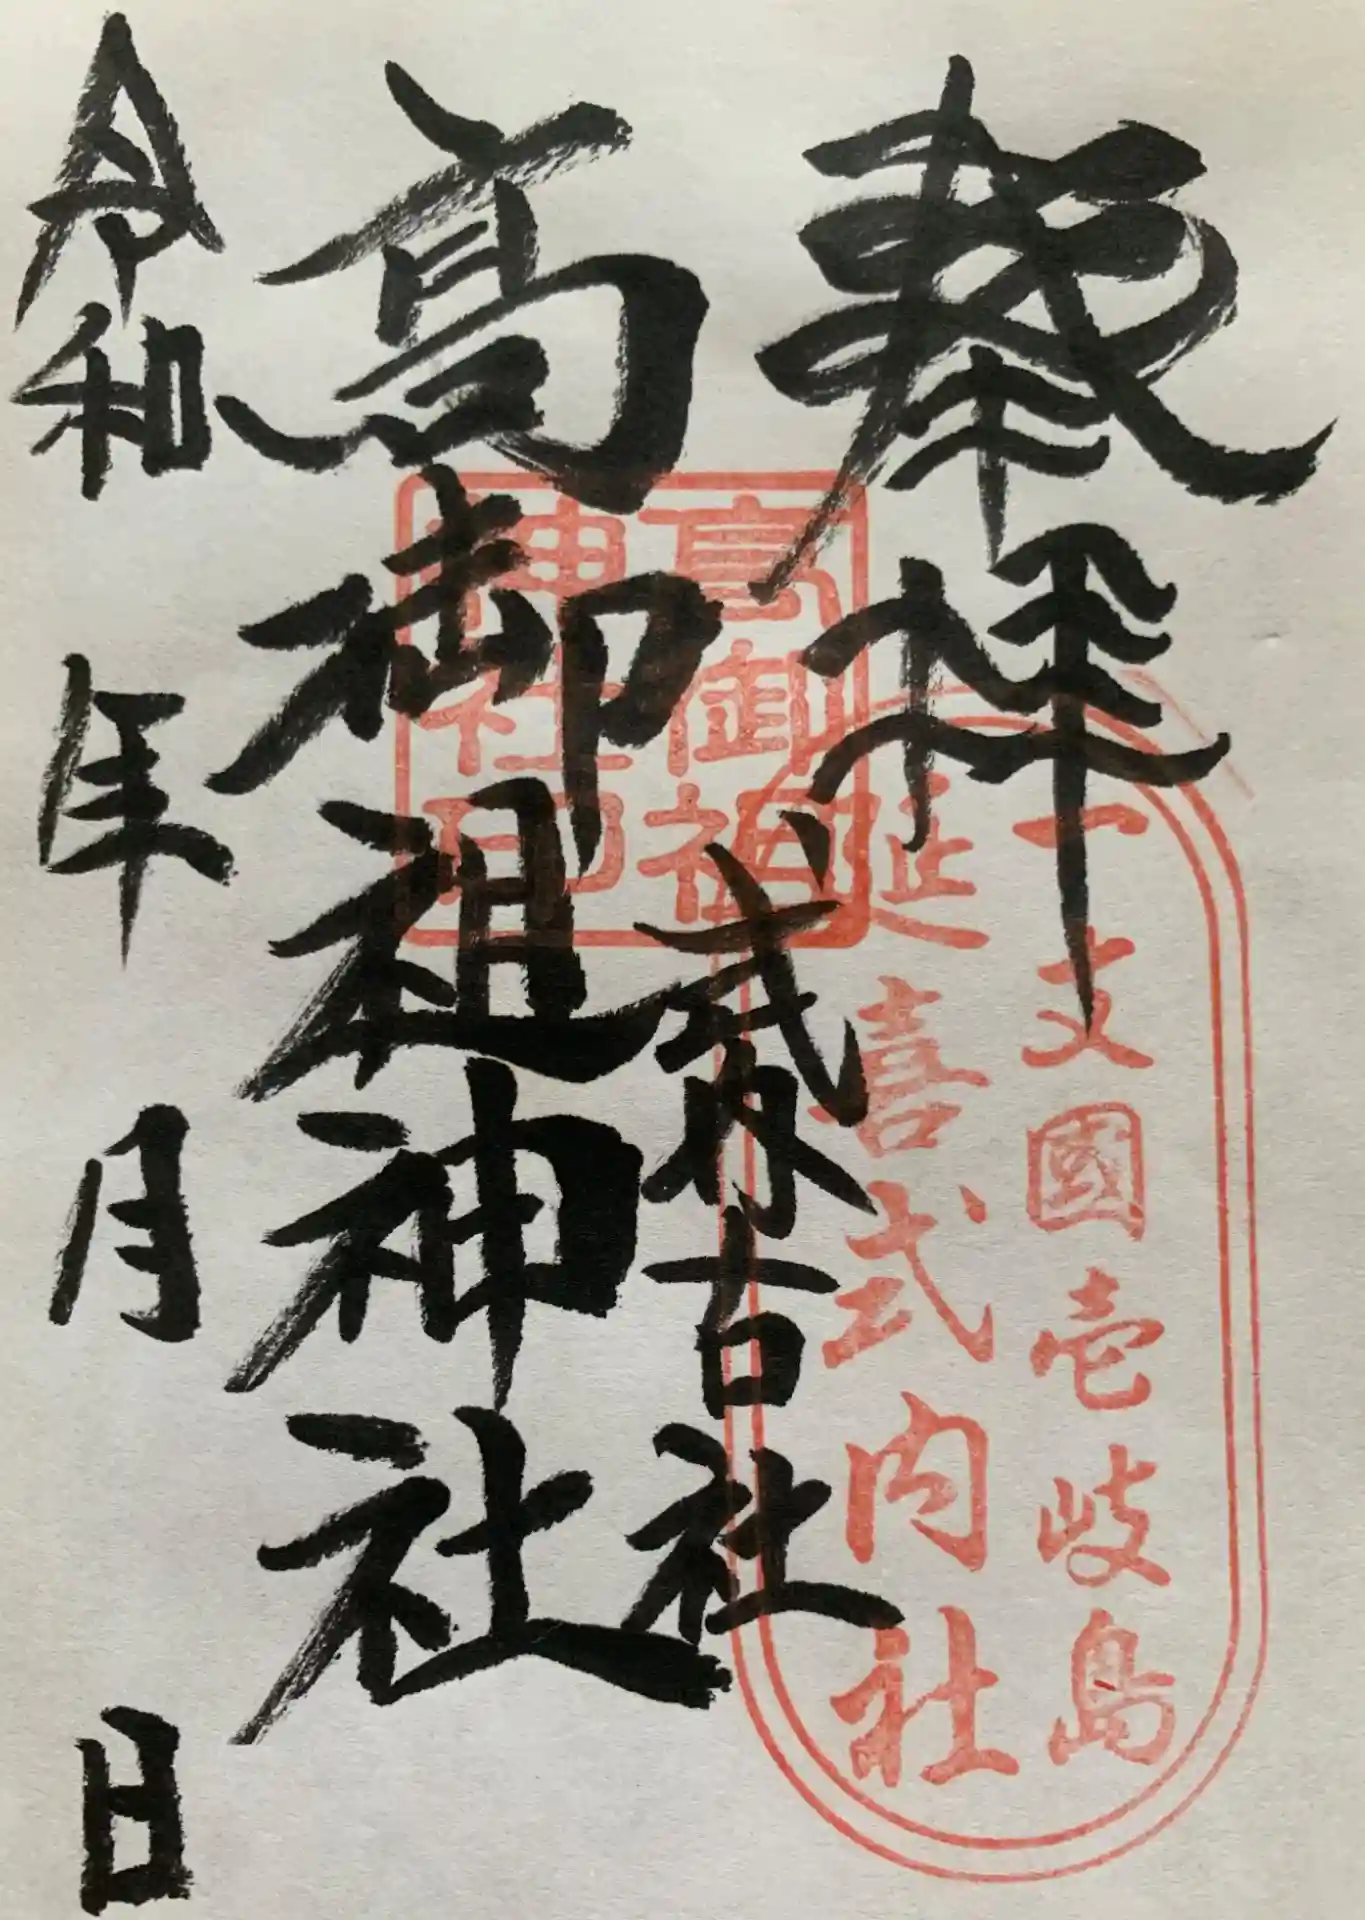 奉拝
一支國壱岐島
延喜式内社
式内古社
高御祖
神社印
高御祖神社
令和 年 月 日